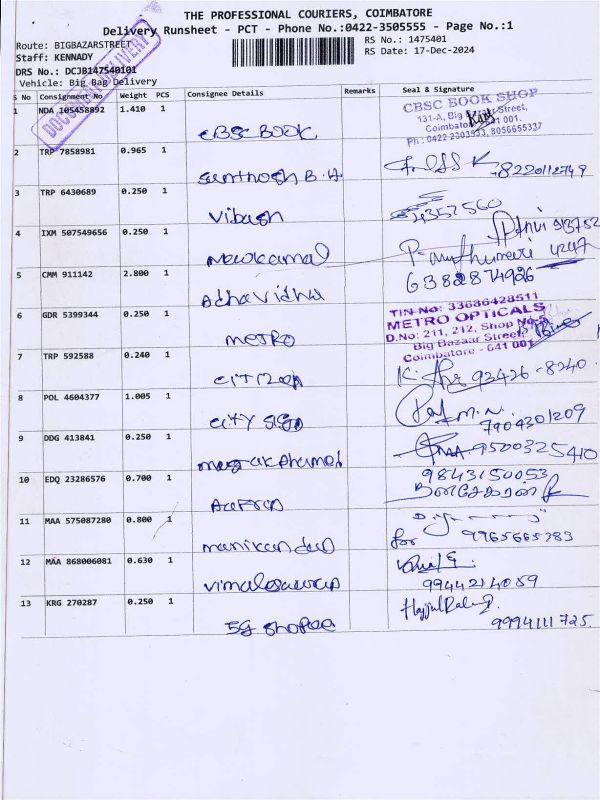 THE PROFESSIONAL COURIERS, COIMBATORE
Delivery Runsheet - PCT - Phone No.:0422-3505555 - Page No.:1
Route: BIGBAZARSTREET RS No.: 1475401
Staff: KENNADY RS Date: 17-Dec-2024
DRS No.: DCJB147540101
Vehicle: Big Bag Delivery
S No Consignment No Weight PCS Consignee Details Remarks Seal & Signature
1 NDA 105458892 1.410 1 CBSC BOOK
CBSC BOOK SHOP
131-A, Big Bazaar Street,
Coimbatore 641 001.
Ph: 0422 2303533, 8056655337
2 TRP 7858981 0.965 1 Santhosh B.H 8220112749
3 TRP 6430689 0.250 1 Vibash
4 IXM 507549656 0.250 1 Newkamal
5 CMM 911142 2.800 1 Adhavidhu 6382874926
6 GDR 5399344 0.250 1 METRO
TIN No: 33686428511
METRO OPTICALS
D.No: 211, 212, Shop No.5
Big Bazaar Street,
Coimbatore - 641 001
7 TRP 592588 0.240 1 93426-8240
8 POL 4604377 1.005 1 City 7904301209
9 DDG 413841 0.250 1 9500325410
10 EDQ 23286576 0.700 1 9843150053
தனசேகரன்
11 MAA 575087280 0.800 1 manikandan for 9965665783
12 MAA 868006081 0.630 1 9944214059
13 KRG 270287 0.250 1 5g Shopee 9994111725